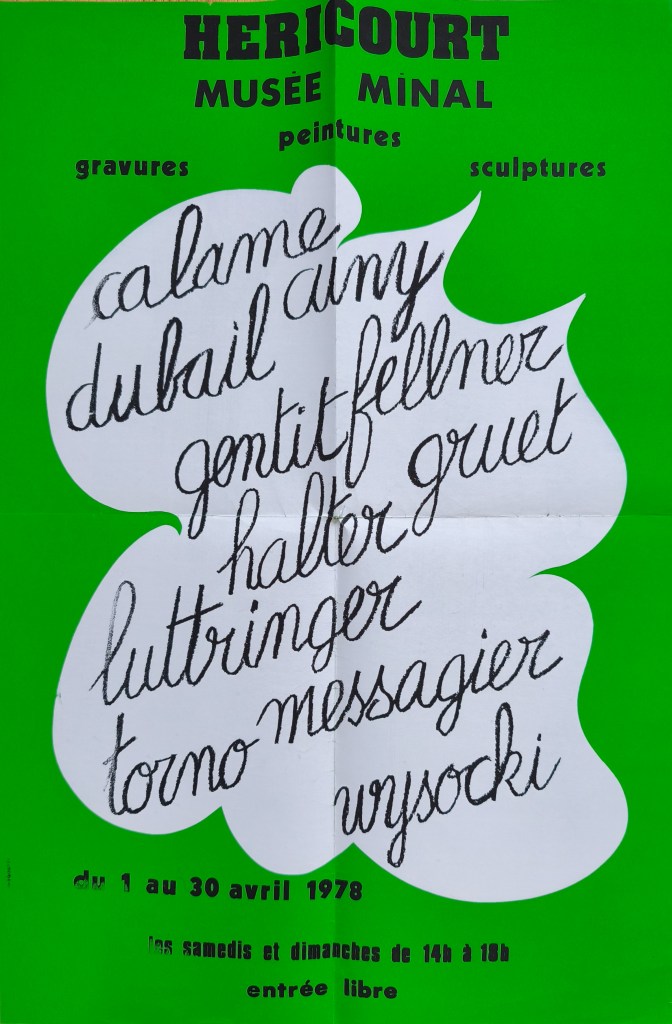 HERICOURT
MUSÉE MINAL
peintures
gravures sculptures
calame
cuny
dubail
fellner
gentit
gruet
halter
luttringer
messagier
torno
wysocki
du 1 au 30 avril 1978
les samedis et dimanches de 14h à 18h
entrée libre